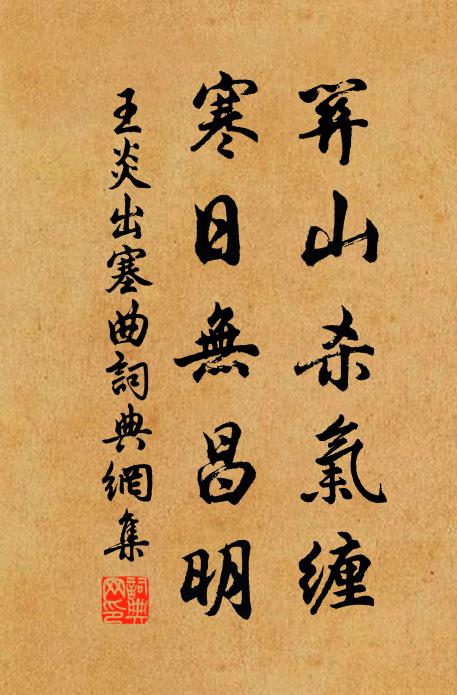 關山杀氣缠
寒日無昌明
王炎出塞曲詞典網集
詞典
网印